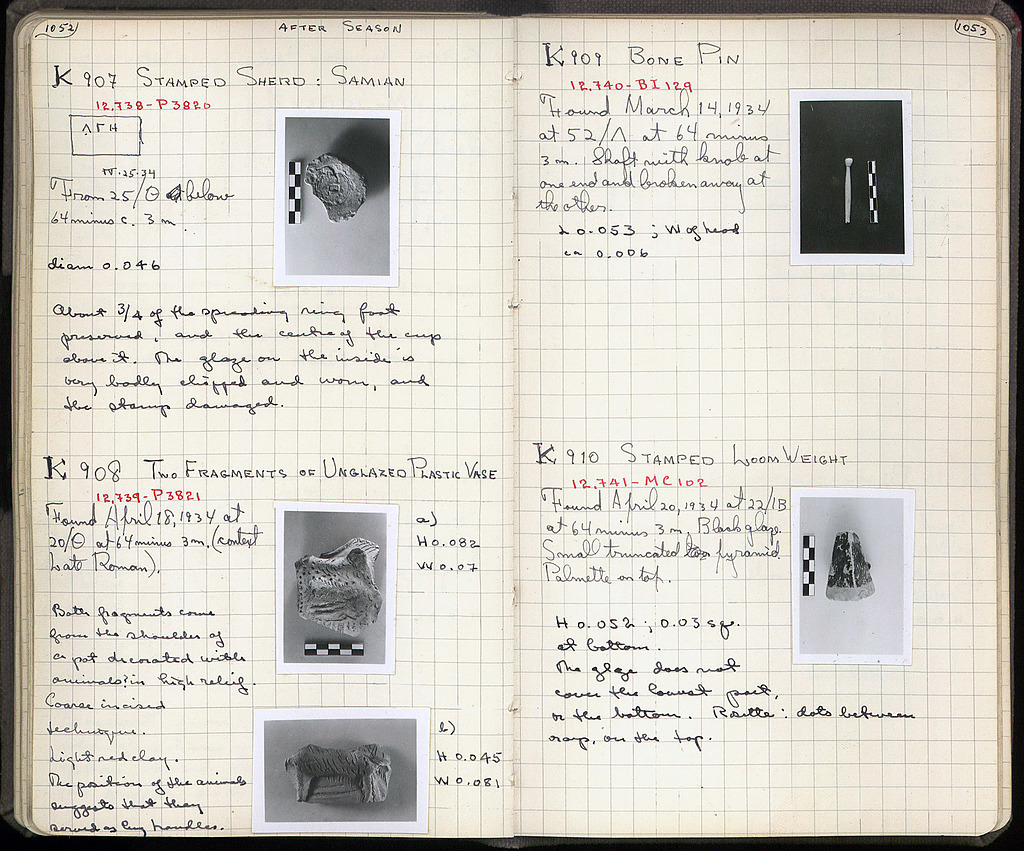 1052
AFTER SEASON
K 907 STAMPED SHERD : SAMIAN
12,738-P3820
ΛΓΗ
IV.25.34
From 25/Θ below
64 minus c. 3 m.
diam 0.046
About 3/4 of the spreading ring foot
preserved, and the centre of the cup
above it. The glaze on the inside is
very badly chipped and worn, and
the stamp damaged.
K 908 TWO FRAGMENTS OF UNGLAZED PLASTIC VASE
12,739-P3821
Found April 18, 1934 at
20/Θ at 64 minus 3 m. (context
Late Roman).
a)
H 0.082
W 0.07
Both fragments come
from the shoulder of
a pot decorated with
animals? in high relief.
Coarse incised
technique.
Light red clay.
The position of the animals
suggests that they
served as lug handles.
b)
H 0.045
W 0.081
1053
K 909 BONE PIN
12,740-BI 129
Found March 14, 1934
at 52/Λ at 64 minus
3 m. Shaft with knob at
one end and broken away at
the other.
L 0.053 ; W of head
ca 0.006
K 910 STAMPED LOOM WEIGHT
12,741-MC 102
Found April 20, 1934 at 22/ΙΒ
at 64 minus 3 m. Black glaze.
Small truncated pyramid.
Palmette on top.
H 0.052 ; 0.03 sq.
at bottom.
The glaze does not
cover the lowest part,
or the bottom. Rosette : dots between
rays, on the top.